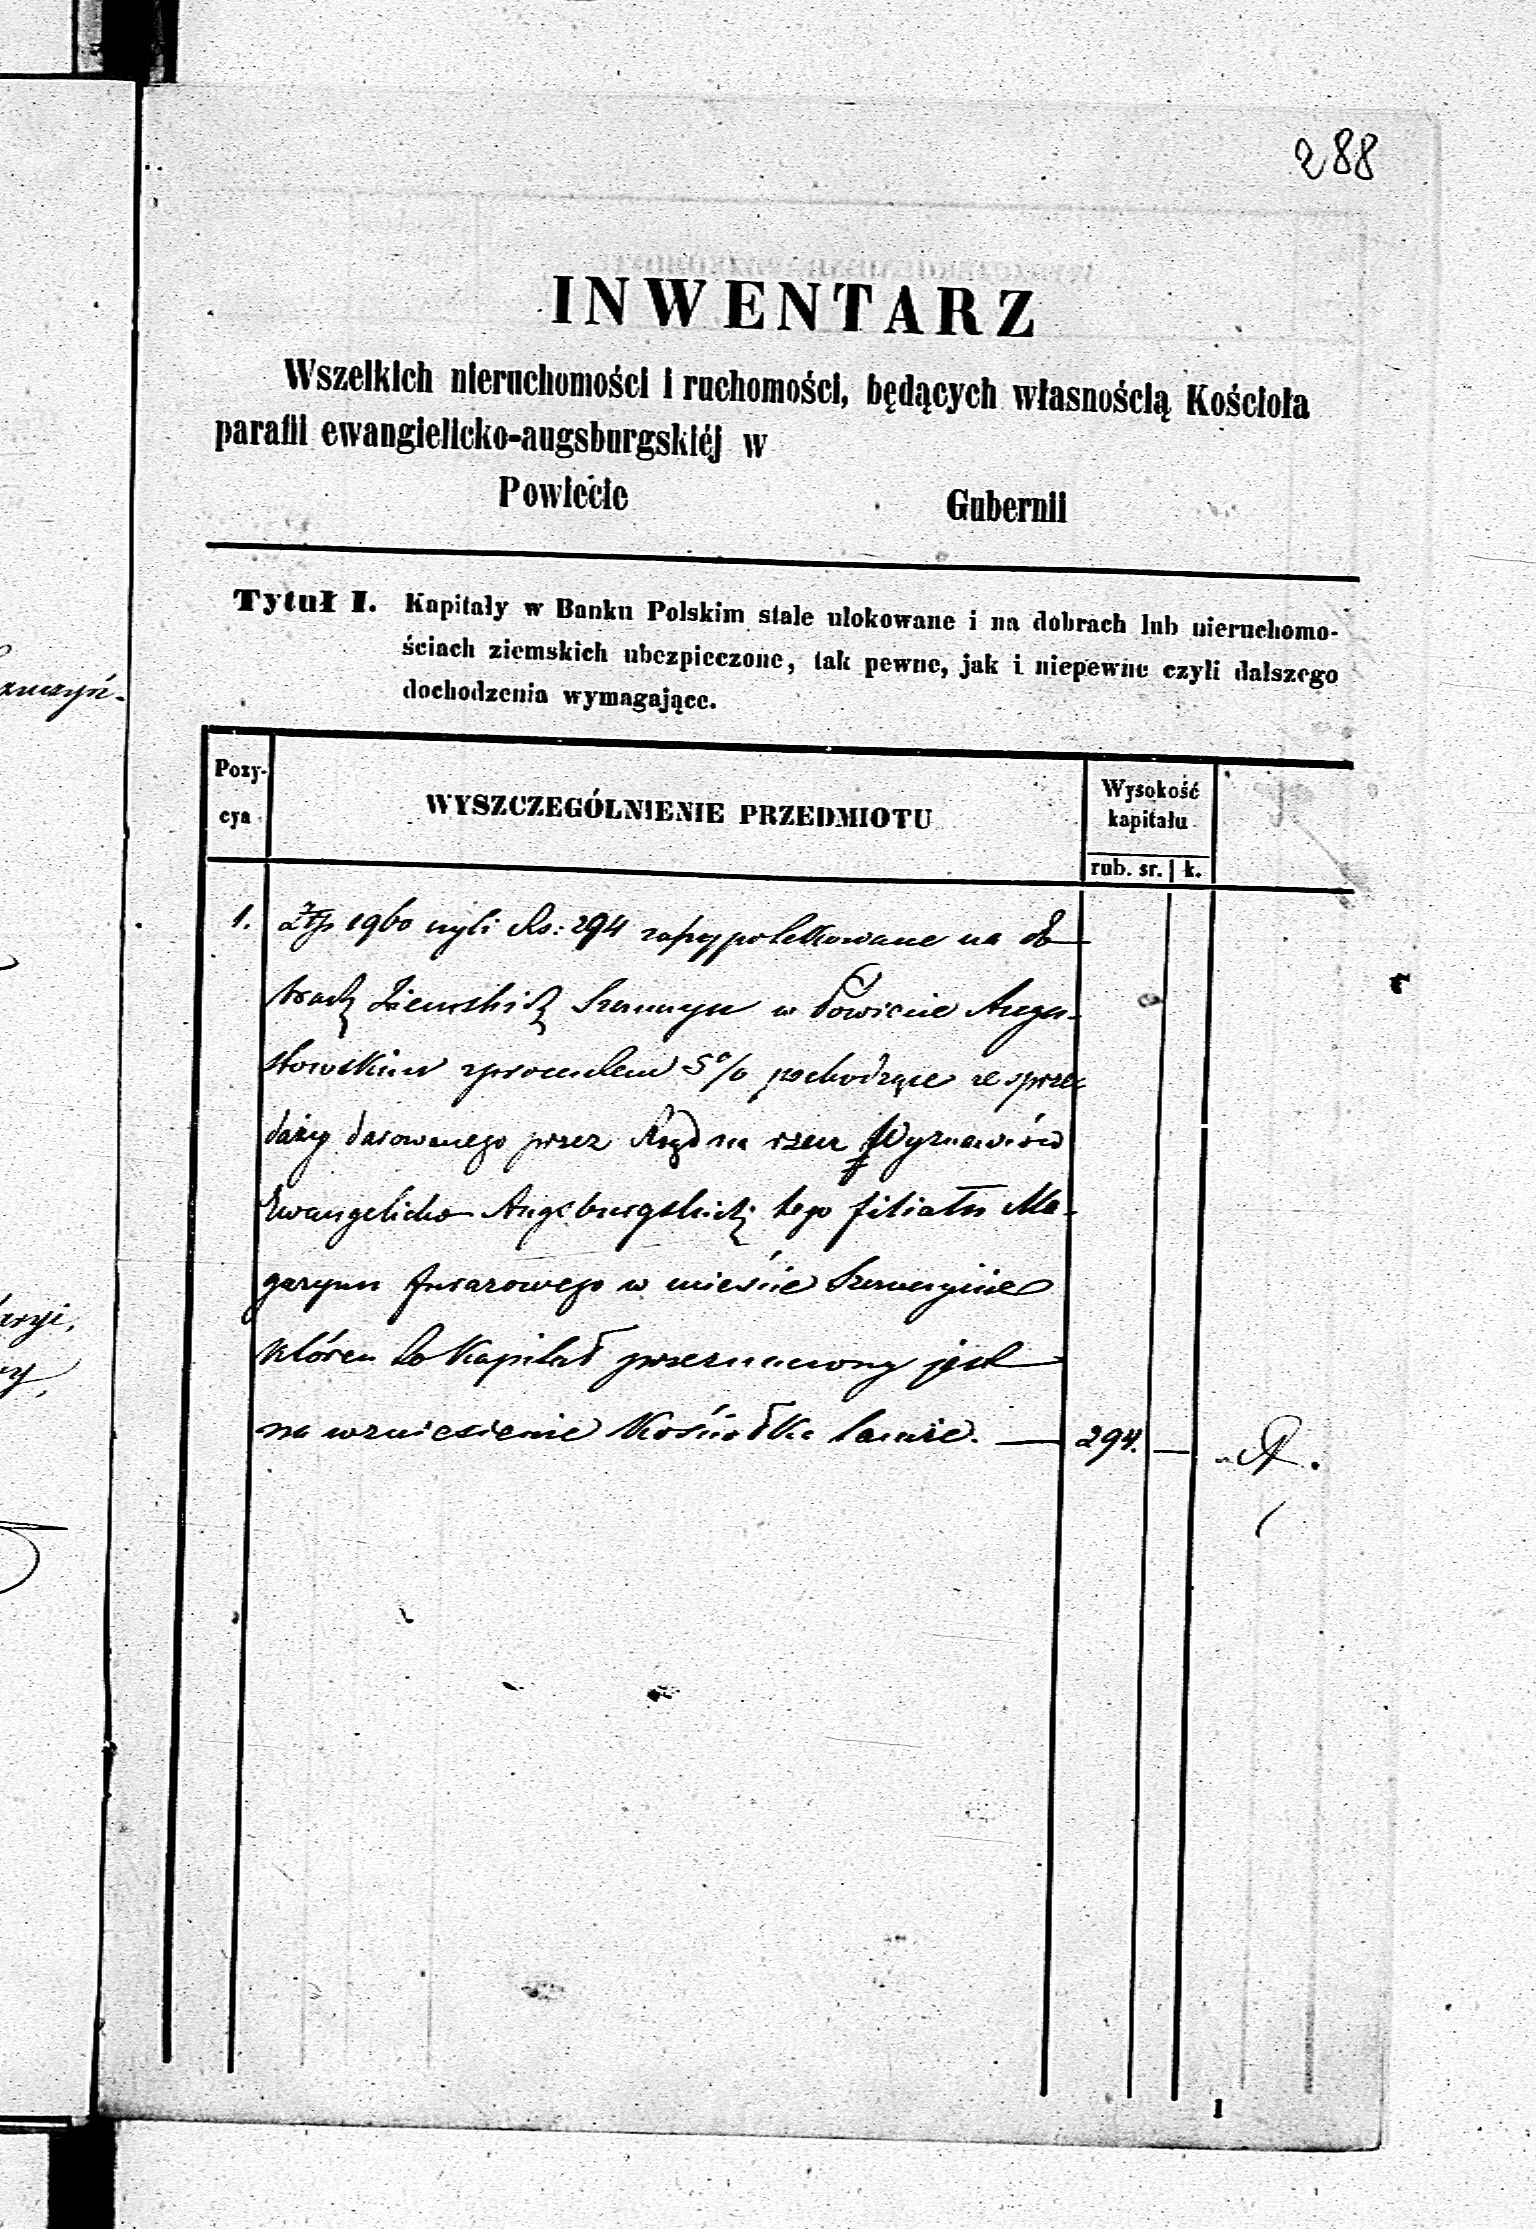 288
INWENTARZ
Wszelkich nieruchomości i ruchomości, będących własnością Kościoła
parafii ewangielicko-augsburgskiéj w
Powiecie Gubernii
Tytuł I. Kapitały w Banku Polskim stale ulokowane i na dobrach lub nieruchomo-
ściach ziemskich ubezpieczone, tak pewne, jak i niepewne czyli dalszego
dochodzenia wymagające.
Pozy-
cya
WYSZCZEGÓLNIENIE PRZEDMIOTU
Wysokość
kapitału
rub. sr. k.
1. Złp 1960 czyli Rs: 294 na do
brach Ziemskich w Powiecie Augu-
stowskim z procentem 5% pochodzące ze sprze
daży darowanego przez Rząd na rzecz Wyznawców
Ewangelicko Augsburgskich tego filiału Ma-
gazynu w mieście
któren to Kapitał przeznaczony jest
na wzniesienie Kościołka tamże. — 294. —
1